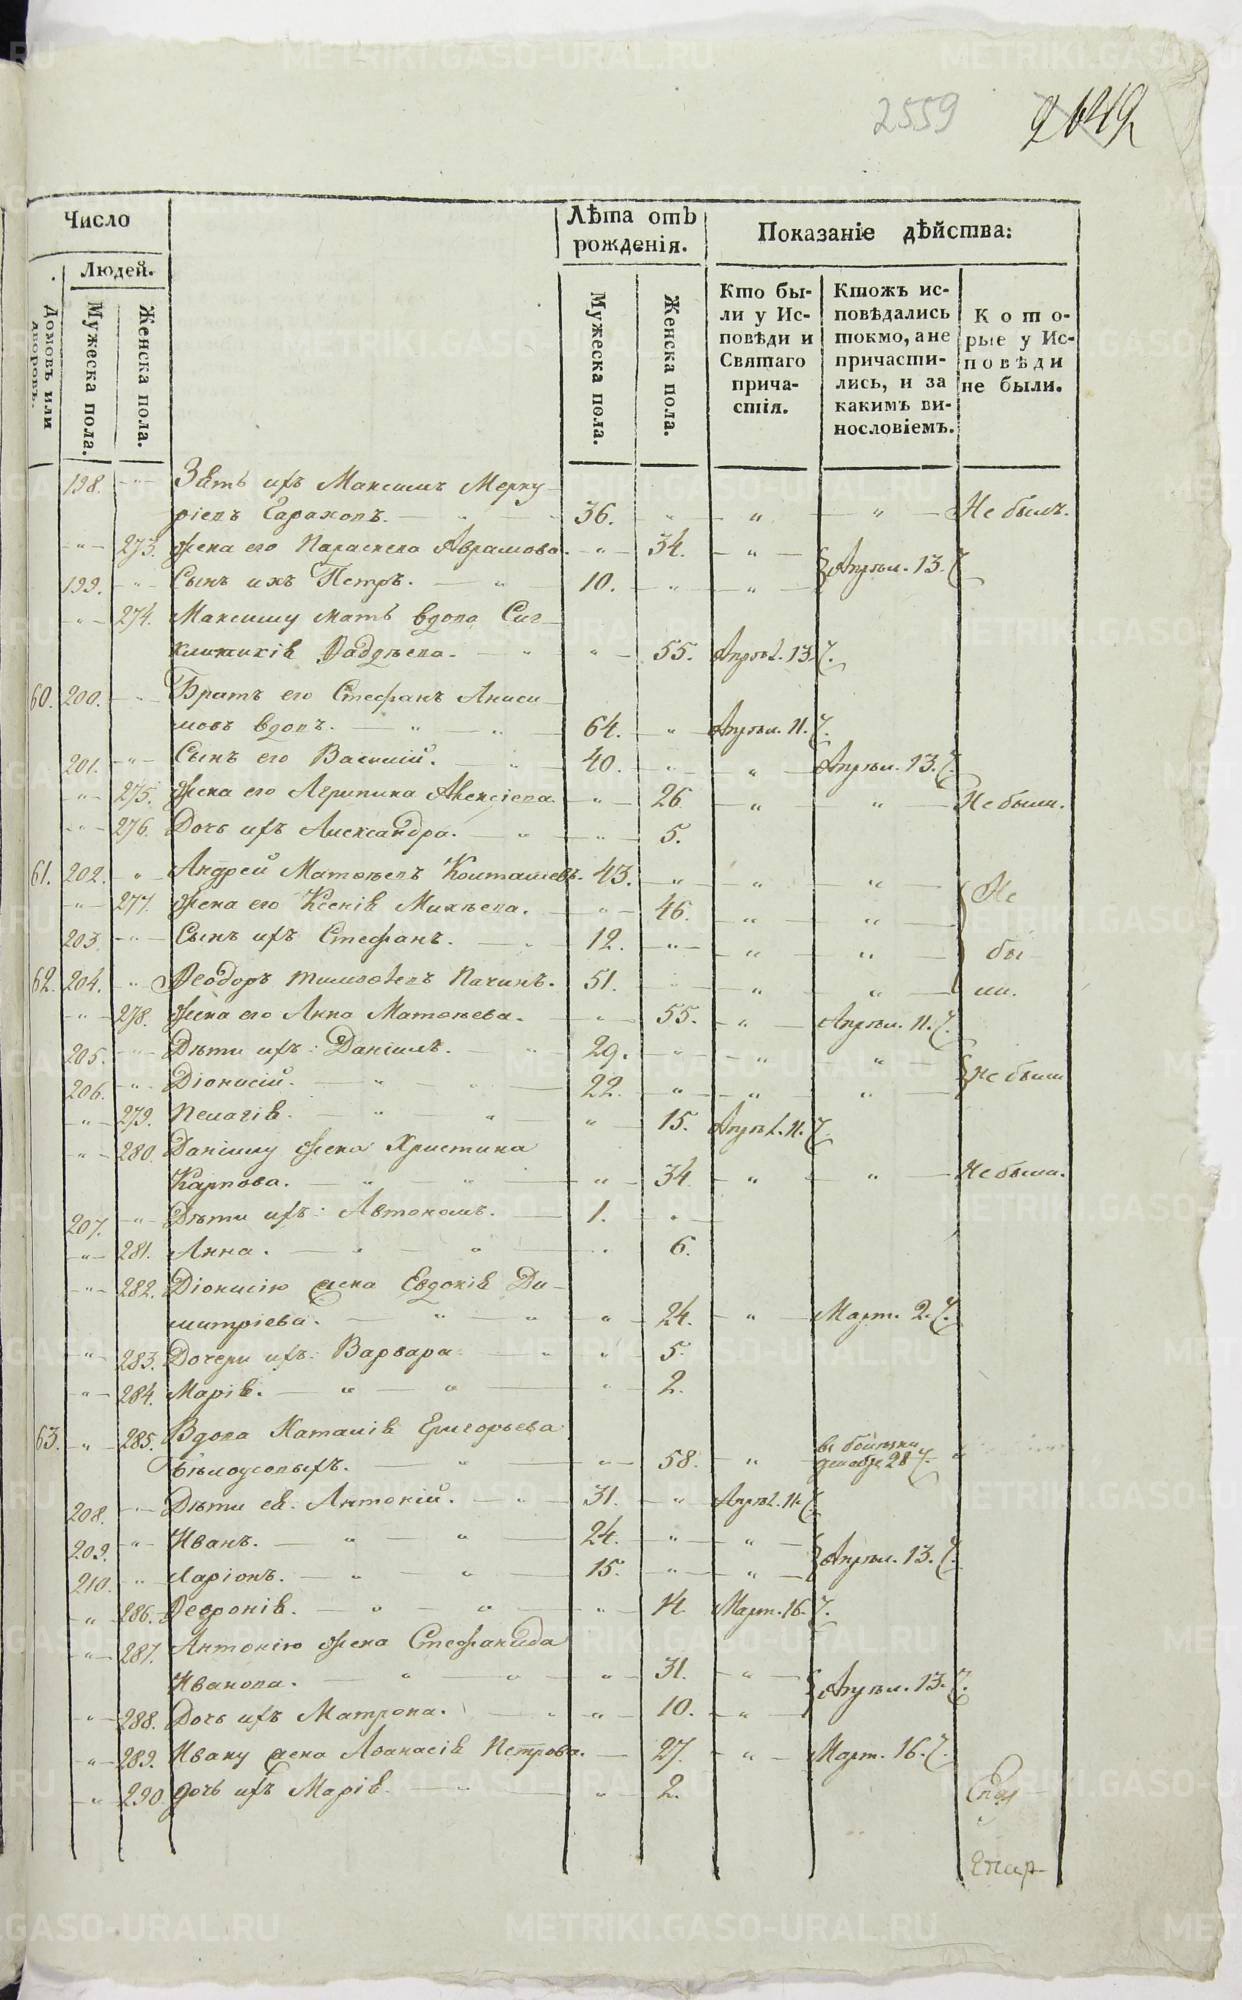 2559
Число
Людей.
Домовъ или дворовъ.
Мужеска пола.
Женска пола.
Лѣта отъ
рожденія.
Мужеска пола.
Женска пола.
Показаніе дѣйства:
Кто бы-
ли у Ис-
повѣди и
Святаго
прича-
стія.
Ктожъ ис-
повѣдались
токмо, а не
причасти-
лись, и за
какимъ ви-
нословіемъ.
Кото-
рые у Ис-
повѣди
не были.
198. Зять ихъ Максимъ Мерку-
ріевъ 36. Не былъ.
273. жена его Параскева Аврамова. 34.
199. Сынъ ихъ Петръ. 10. Апрѣл. 13.
274. Максиму мать вдова Син-
клитикія Фадѣева. 55. Апрѣл. 13.
60. 200. Братъ его Стефанъ Аниси-
мовъ вдовъ. 64. Апрѣл. 11.
201. Сынъ его Василій. 40. Апрѣл. 13.
275. Жена его Агрипина Алексіева. 26 Не была.
276. Дочь ихъ Александра. 5.
61. 202. Андрей Матвѣевъ 43. Не
277. Жена его Ксенія Михѣева. 46.
203. Сынъ ихъ Стефанъ. 12. бы-
62. 204. Ѳеодоръ Тимоѳѣевъ Пачинъ. 51. ли.
278. Жена его Анна Матвѣева. 55. Апрѣл. 11.
205. Дѣти ихъ: Даніилъ. 29.
206. Діонисій. 22. Не были
279. Пелагія. 15. Апрѣл. 11.
280. Даніилу жена Христина
Карпова. 34 Не была.
207. Дѣти ихъ: Автономъ. 1.
281. Анна. 6.
282. Діонисію жена Евдокія Ди-
митріева. 24. Март. 2.
283. Дочери ихъ: Варвара 5.
284. Марія. 2.
63. 285. Вдова Наталія Григорьева
Бѣлоусовыхъ. 58. въ болѣзни
декабр. 28
208. Дѣти ея. Антоній. 31. Апрѣл. 11.
209. Иванъ. 24.
210. Ларіонъ. 15. Апрѣл. 13.
286. Ѳевронія. 14 Март. 16.
287. Антонію жена Стефанида
Иванова. 31. Апрѣл. 13.
288. Дочь ихъ Матрона. 10.
289. Ивану жена Аѳанасія Петрова. 27. Март. 16.
290. дочь ихъ Марія. 2.
METRIKI.GASO-URAL.RU